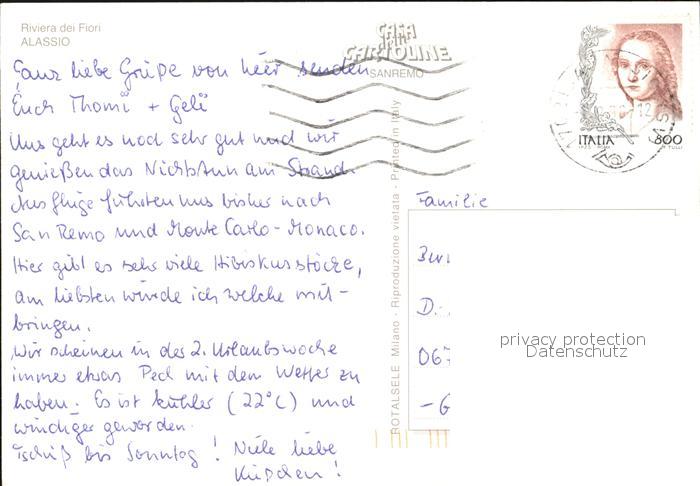 Riviera dei Fiori
ALASSIO
Ganz liebe Grüße von hier senden
Euch Thomi + Geli
Uns geht es noch sehr gut und wir
genießen das Nichtstun am Strand.
Ausflüge führten uns bisher nach
San Remo und Monte Carlo-Monaco.
Hier gibt es sehr viele Hibiskusstöcke,
am liebsten würde ich welche mit-
bringen.
Wir scheinen in der 2. Urlaubswoche
immer etwas Pech mit dem Wetter zu
haben. Es ist kühler (22°C) und
windiger geworden.
Tschüß bis Sonntag! Viele liebe
Küßchen!
CARTOLINE
SANREMO
ROTALSELE Milano - Riproduzione vietata - Printed in Italy
ITALIA 800
Familie
D.
067
-G
privacy protection
Datenschutz